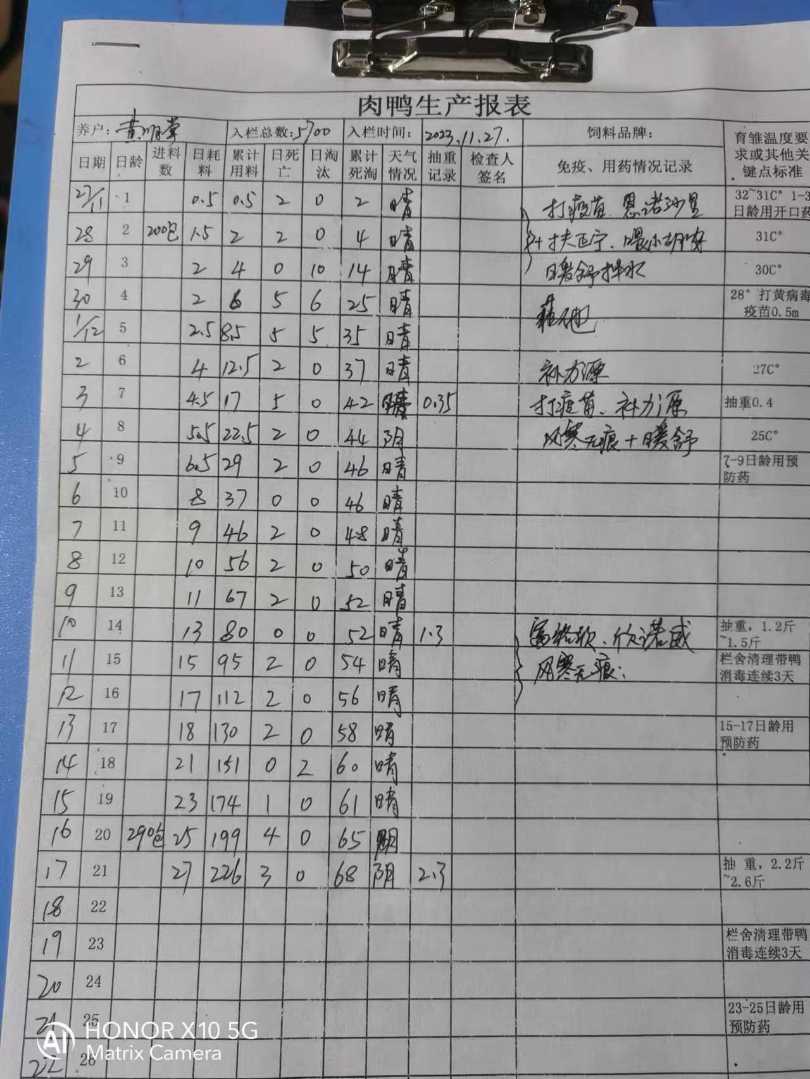 肉鸭生产报表
养户: 入栏总数:5700 入栏时间: 2023.11.27. 饲料品牌: 育雏温度要求或其他关键点标准
日期 日龄 进料数 日耗料 累计用料 日死亡 日淘汰 累计死淘 天气情况 抽重记录 检查人签名 免疫、用药情况记录
27/11 1 0.5 0.5 2 0 2 晴 打疫苗 恩诺沙星 32~31C° 1-3日龄用开口药
28 2 200包 1.5 2 2 0 4 晴 31C°
29 3 2 4 0 10 14 晴 暖舒拌水 30C°
30 4 2 6 5 6 25 晴 28° 打黄病毒疫苗0.5m
1/12 5 2.5 8.5 5 5 35 晴
2 6 4 12.5 2 0 37 晴 补力源 27C°
3 7 4.5 17 5 0 42 晴 0.35 打疫苗、补力源 抽重0.4
4 8 5.5 22.5 2 0 44 阴 风寒无痕+暖舒 25C°
5 9 6.5 29 2 0 46 晴 7-9日龄用预防药
6 10 8 37 0 0 46 晴
7 11 9 46 2 0 48 晴
8 12 10 56 2 0 50 晴
9 13 11 67 2 0 52 晴
10 14 13 80 0 0 52 晴 1.3 欣诺威 抽重，1.2斤~1.5斤
11 15 15 95 2 0 54 晴 风寒无痕 栏舍清理带鸭消毒连续3天
12 16 17 112 2 0 56 晴
13 17 18 130 2 0 58 晴 15-17日龄用预防药
14 18 21 151 0 2 60 晴
15 19 23 174 1 0 61 晴
16 20 290包 25 199 4 0 65 阴
17 21 27 226 3 0 68 阴 2.3 抽 重，2.2斤~2.6斤
18 22
19 23 栏舍清理带鸭消毒连续3天
20 24
21 25 23-25日龄用预防药
22 26
HONOR X10 5G
Matrix Camera